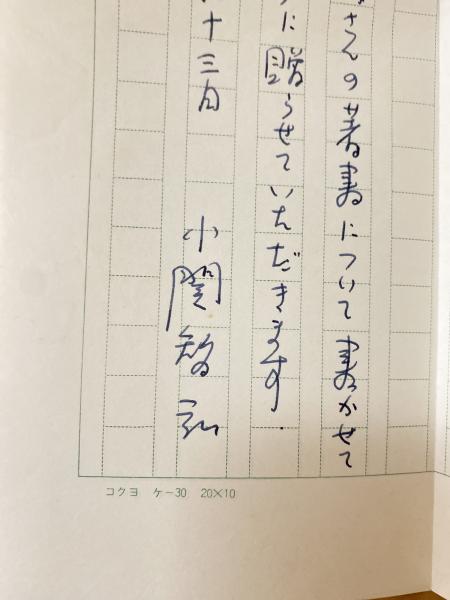 さんの著書について書かせて
に贈らせていただきます.
十三日
小関智弘
コクヨ ケー30 20×10